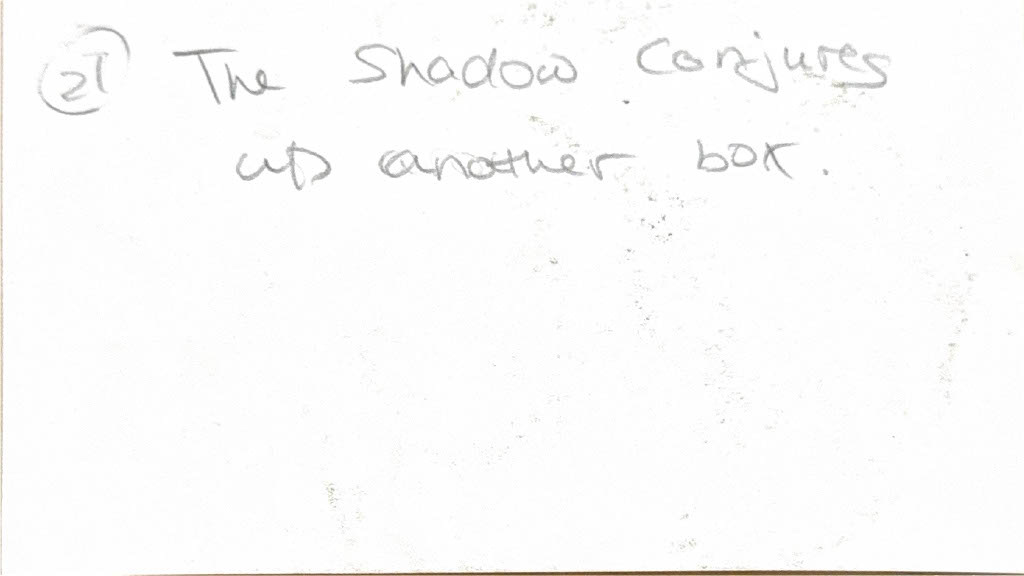 21 The Shadow Conjures
up another box.